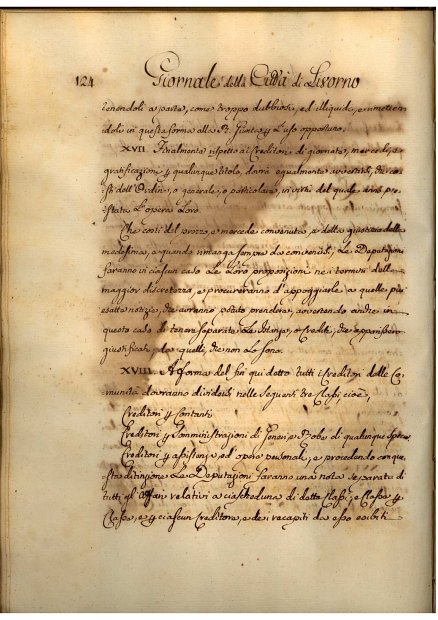 124 Giornale della Città di Livorno
tenendoli a parte, come troppo dubbiosi, ed illiquidi, e
doli in questa forma alla R. Giunta p l'uso opportuno.
XVII. Finalmente rispetto ai Creditori di giornate, mercedi, e
gratificazioni p qualunque titolo, dovrà egualmente avvertirsi, che
dell'Ordine, o generale, o particolare, in virtù del quale
stata l'opera loro.
Che costi del prezzo, e mercede convenuta, o della giustizia della
medesima, e quando rimanga sempre da convenirsi, Le Deputazioni
faranno in ciascun caso le loro proposizioni ne i termini della
maggior discretezza, e procureranno d'appoggiarle a quelle più
esatte notizie, che avranno potuto prendere, avvertendo anche in
questo caso di tenere separate Le Istanze, o Crediti, che appariscono
giustificati, da quelli, che non lo sono.
XVIII. A forma del fin qui detto tutti i Creditori delle Co-
munità dovranno dividersi nelle seguenti tre Classi, cioè,
Creditori p Contanti
Creditori p Somministrazioni di Generi, e Robe di qualunque Specie
Creditori p assistenze ed opere personali, e procedendo con que-
sta distinzione Le Deputazioni faranno una nota separata di
tutti gli Affari relativi a ciascheduna di dette Classi, e Classe p
Classe, e p ciascun Creditore, e dei recapiti da esso esibiti